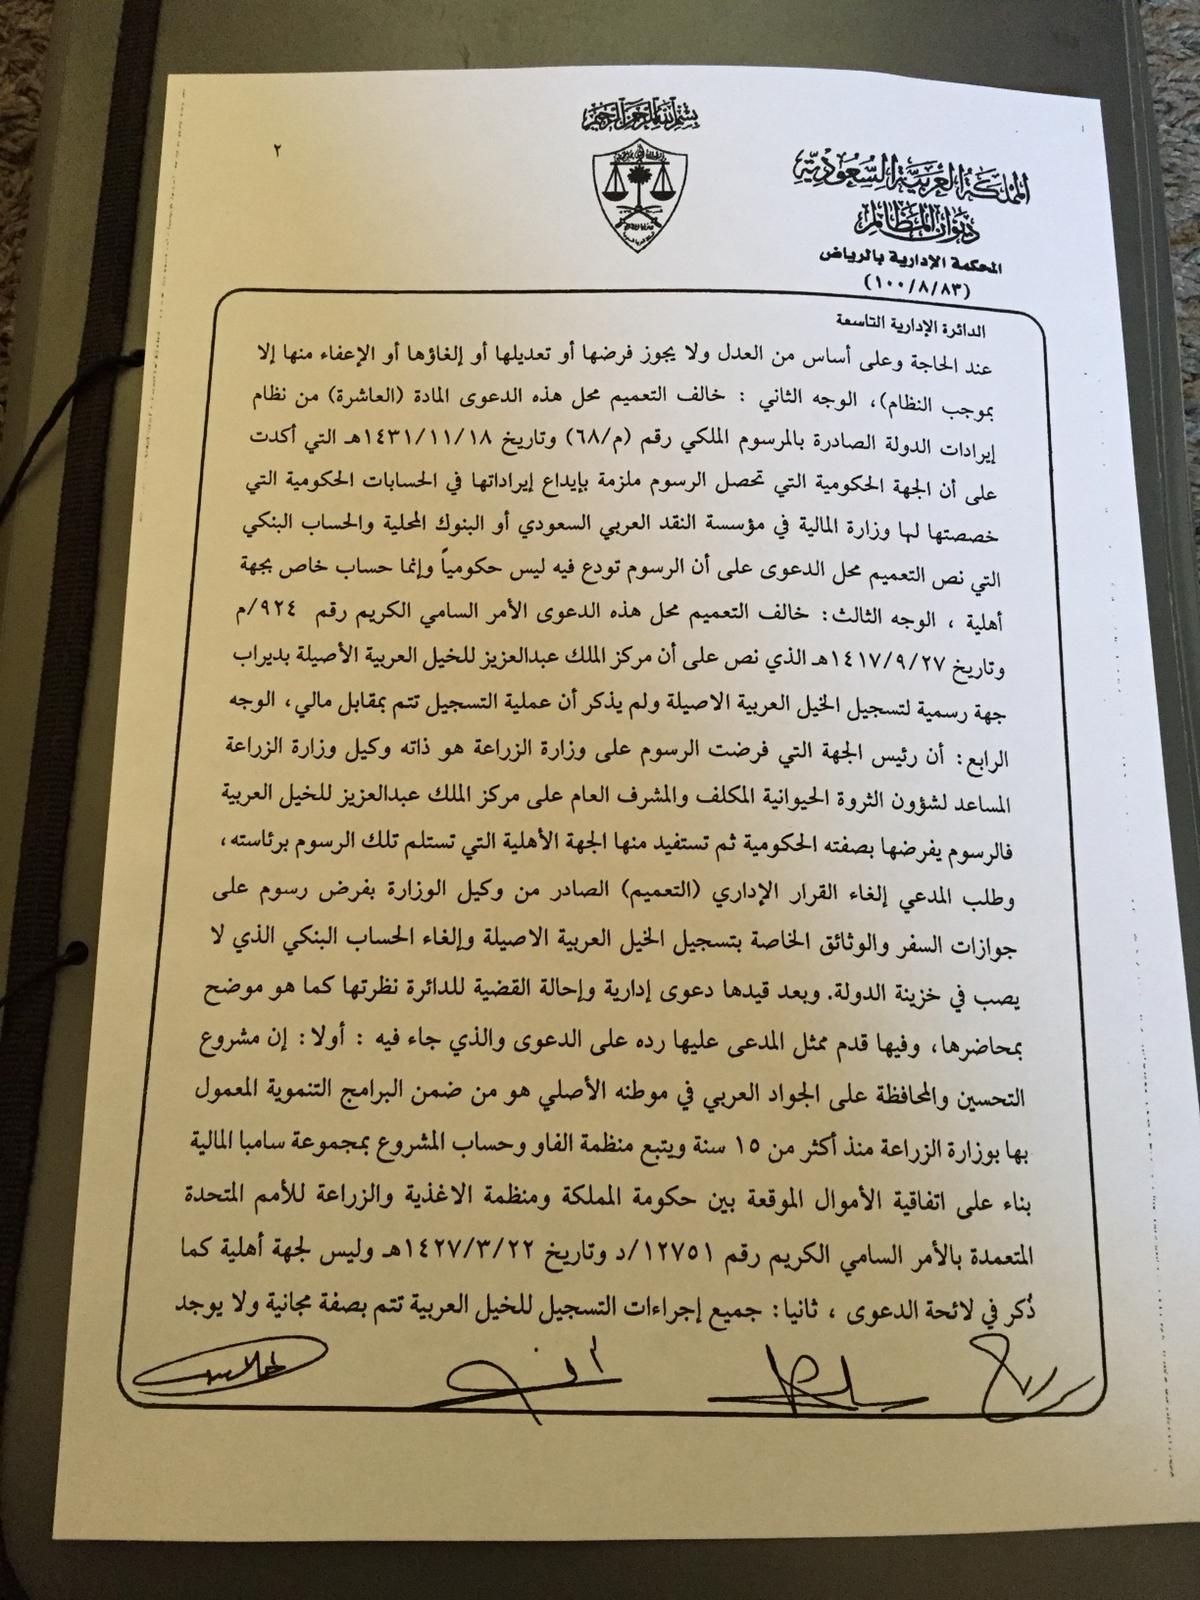 بسم الله الرحمن الرحيم
٢
المملكة العربية السعودية
ديوان المظالم
المحكمة الإدارية بالرياض
(١٠٠/٨/٨٣)
الدائرة الإدارية التاسعة
عند الحاجة وعلى أساس من العدل ولا يجوز فرضها أو تعديلها أو إلغاؤها أو الإعفاء منها إلا
بموجب النظام)، الوجه الثاني : خالف التعميم محل هذه الدعوى المادة (العاشرة) من نظام
إيرادات الدولة الصادرة بالمرسوم الملكي رقم (م/٦٨) وتاريخ ١٤٣١/١١/١٨هـ التي أكدت
على أن الجهة الحكومية التي تحصل الرسوم ملزمة بإيداع إيراداتها في الحسابات الحكومية التي
خصصتها لها وزارة المالية في مؤسسة النقد العربي السعودي أو البنوك المحلية والحساب البنكي
التي نص التعميم محل الدعوى على أن الرسوم تودع فيه ليس حكومياً وإنما حساب خاص بجهة
أهلية ، الوجه الثالث: خالف التعميم محل هذه الدعوى الأمر السامي الكريم رقم ٩٢٤/م
وتاريخ ١٤١٧/٩/٢٧هـ الذي نص على أن مركز الملك عبدالعزيز للخيل العربية الأصيلة بديراب
جهة رسمية لتسجيل الخيل العربية الاصيلة ولم يذكر أن عملية التسجيل تتم بمقابل مالي، الوجه
الرابع: أن رئيس الجهة التي فرضت الرسوم على وزارة الزراعة هو ذاته وكيل وزارة الزراعة
المساعد لشؤون الثروة الحيوانية المكلف والمشرف العام على مركز الملك عبدالعزيز للخيل العربية
فالرسوم يفرضها بصفته الحكومية ثم تستفيد منها الجهة الأهلية التي تستلم تلك الرسوم برئاسته،
وطلب المدعي إلغاء القرار الإداري (التعميم) الصادر من وكيل الوزارة بفرض رسوم على
جوازات السفر والوثائق الخاصة بتسجيل الخيل العربية الاصيلة وإلغاء الحساب البنكي الذي لا
يصب في خزينة الدولة. وبعد قيدها دعوى إدارية وإحالة القضية للدائرة نظرتها كما هو موضح
بمحاضرها، وفيها قدم ممثل المدعى عليها رده على الدعوى والذي جاء فيه : أولا: إن مشروع
التحسين والمحافظة على الجواد العربي في موطنه الأصلي هو من ضمن البرامج التنموية المعمول
بها بوزارة الزراعة منذ أكثر من ١٥ سنة ويتبع منظمة الفاو وحساب المشروع بمجموعة سامبا المالية
بناء على اتفاقية الأموال الموقعة بين حكومة المملكة ومنظمة الاغذية والزراعة للأمم المتحدة
المتعمدة بالأمر السامي الكريم رقم ١٢٧٥١/د وتاريخ ١٤٢٧/٣/٢٢هـ وليس لجهة أهلية كما
ذُكر في لائحة الدعوى ، ثانيا: جميع إجراءات التسجيل للخيل العربية تتم بصفة مجانية ولا يوجد